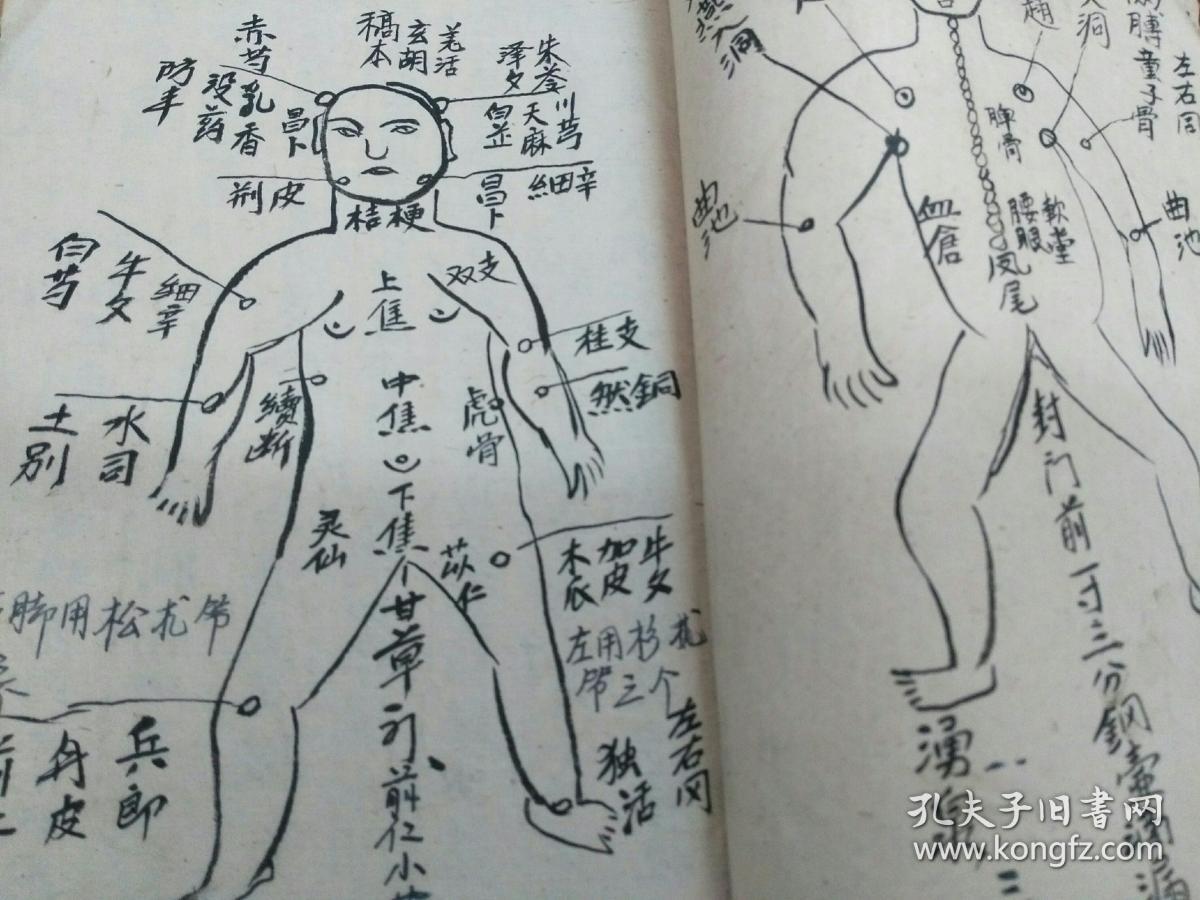 赤芍
乳香
没药
防丰
昌卜
稿本
玄胡
羌活
泽夕
朱苓
川芎
天麻
白芷
荆皮
桔梗
昌卜
細辛
白芍
牛夕
細辛
上焦
双支
桂支
然銅
土别
水司
續断
中焦
虎骨
下焦
灵仙
苡仁
木瓜
加皮
牛夕
脚用松尤节
左用杉尤
节三个
左右同
独活
甘草
前仁小
兵郎
丹皮
童子骨
左右同
曲池
脾骨
血倉
腰眼
軟堂
凤尾
曲池
封门前一寸三分銅壶滴
湧泉
孔夫子旧书网
www.kongfz.com